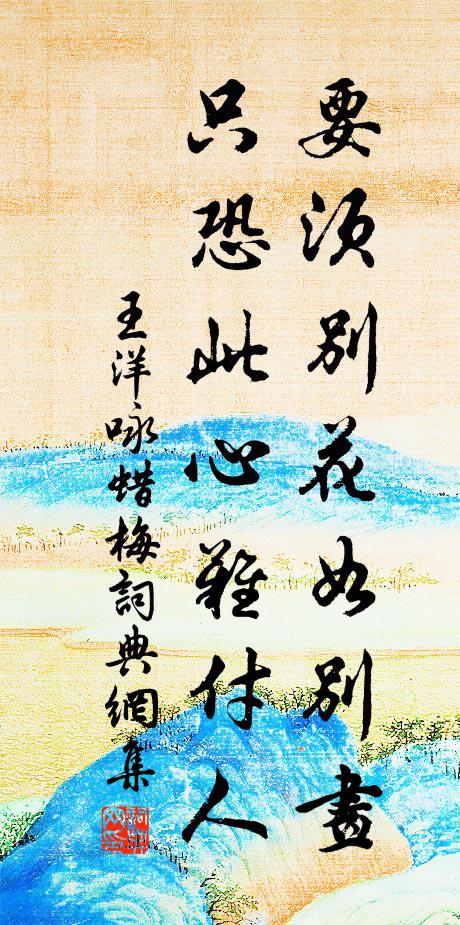 要須別花如別畫
只恐此心難付人
王洋咏蜡梅詞典網集